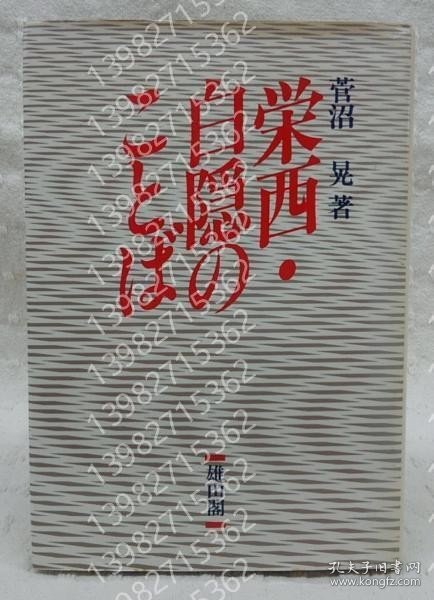 菅沼 晃著
栄西・
白隠の
ことば
雄山閣
13982715362
孔夫子旧书网
www.kongfz.com